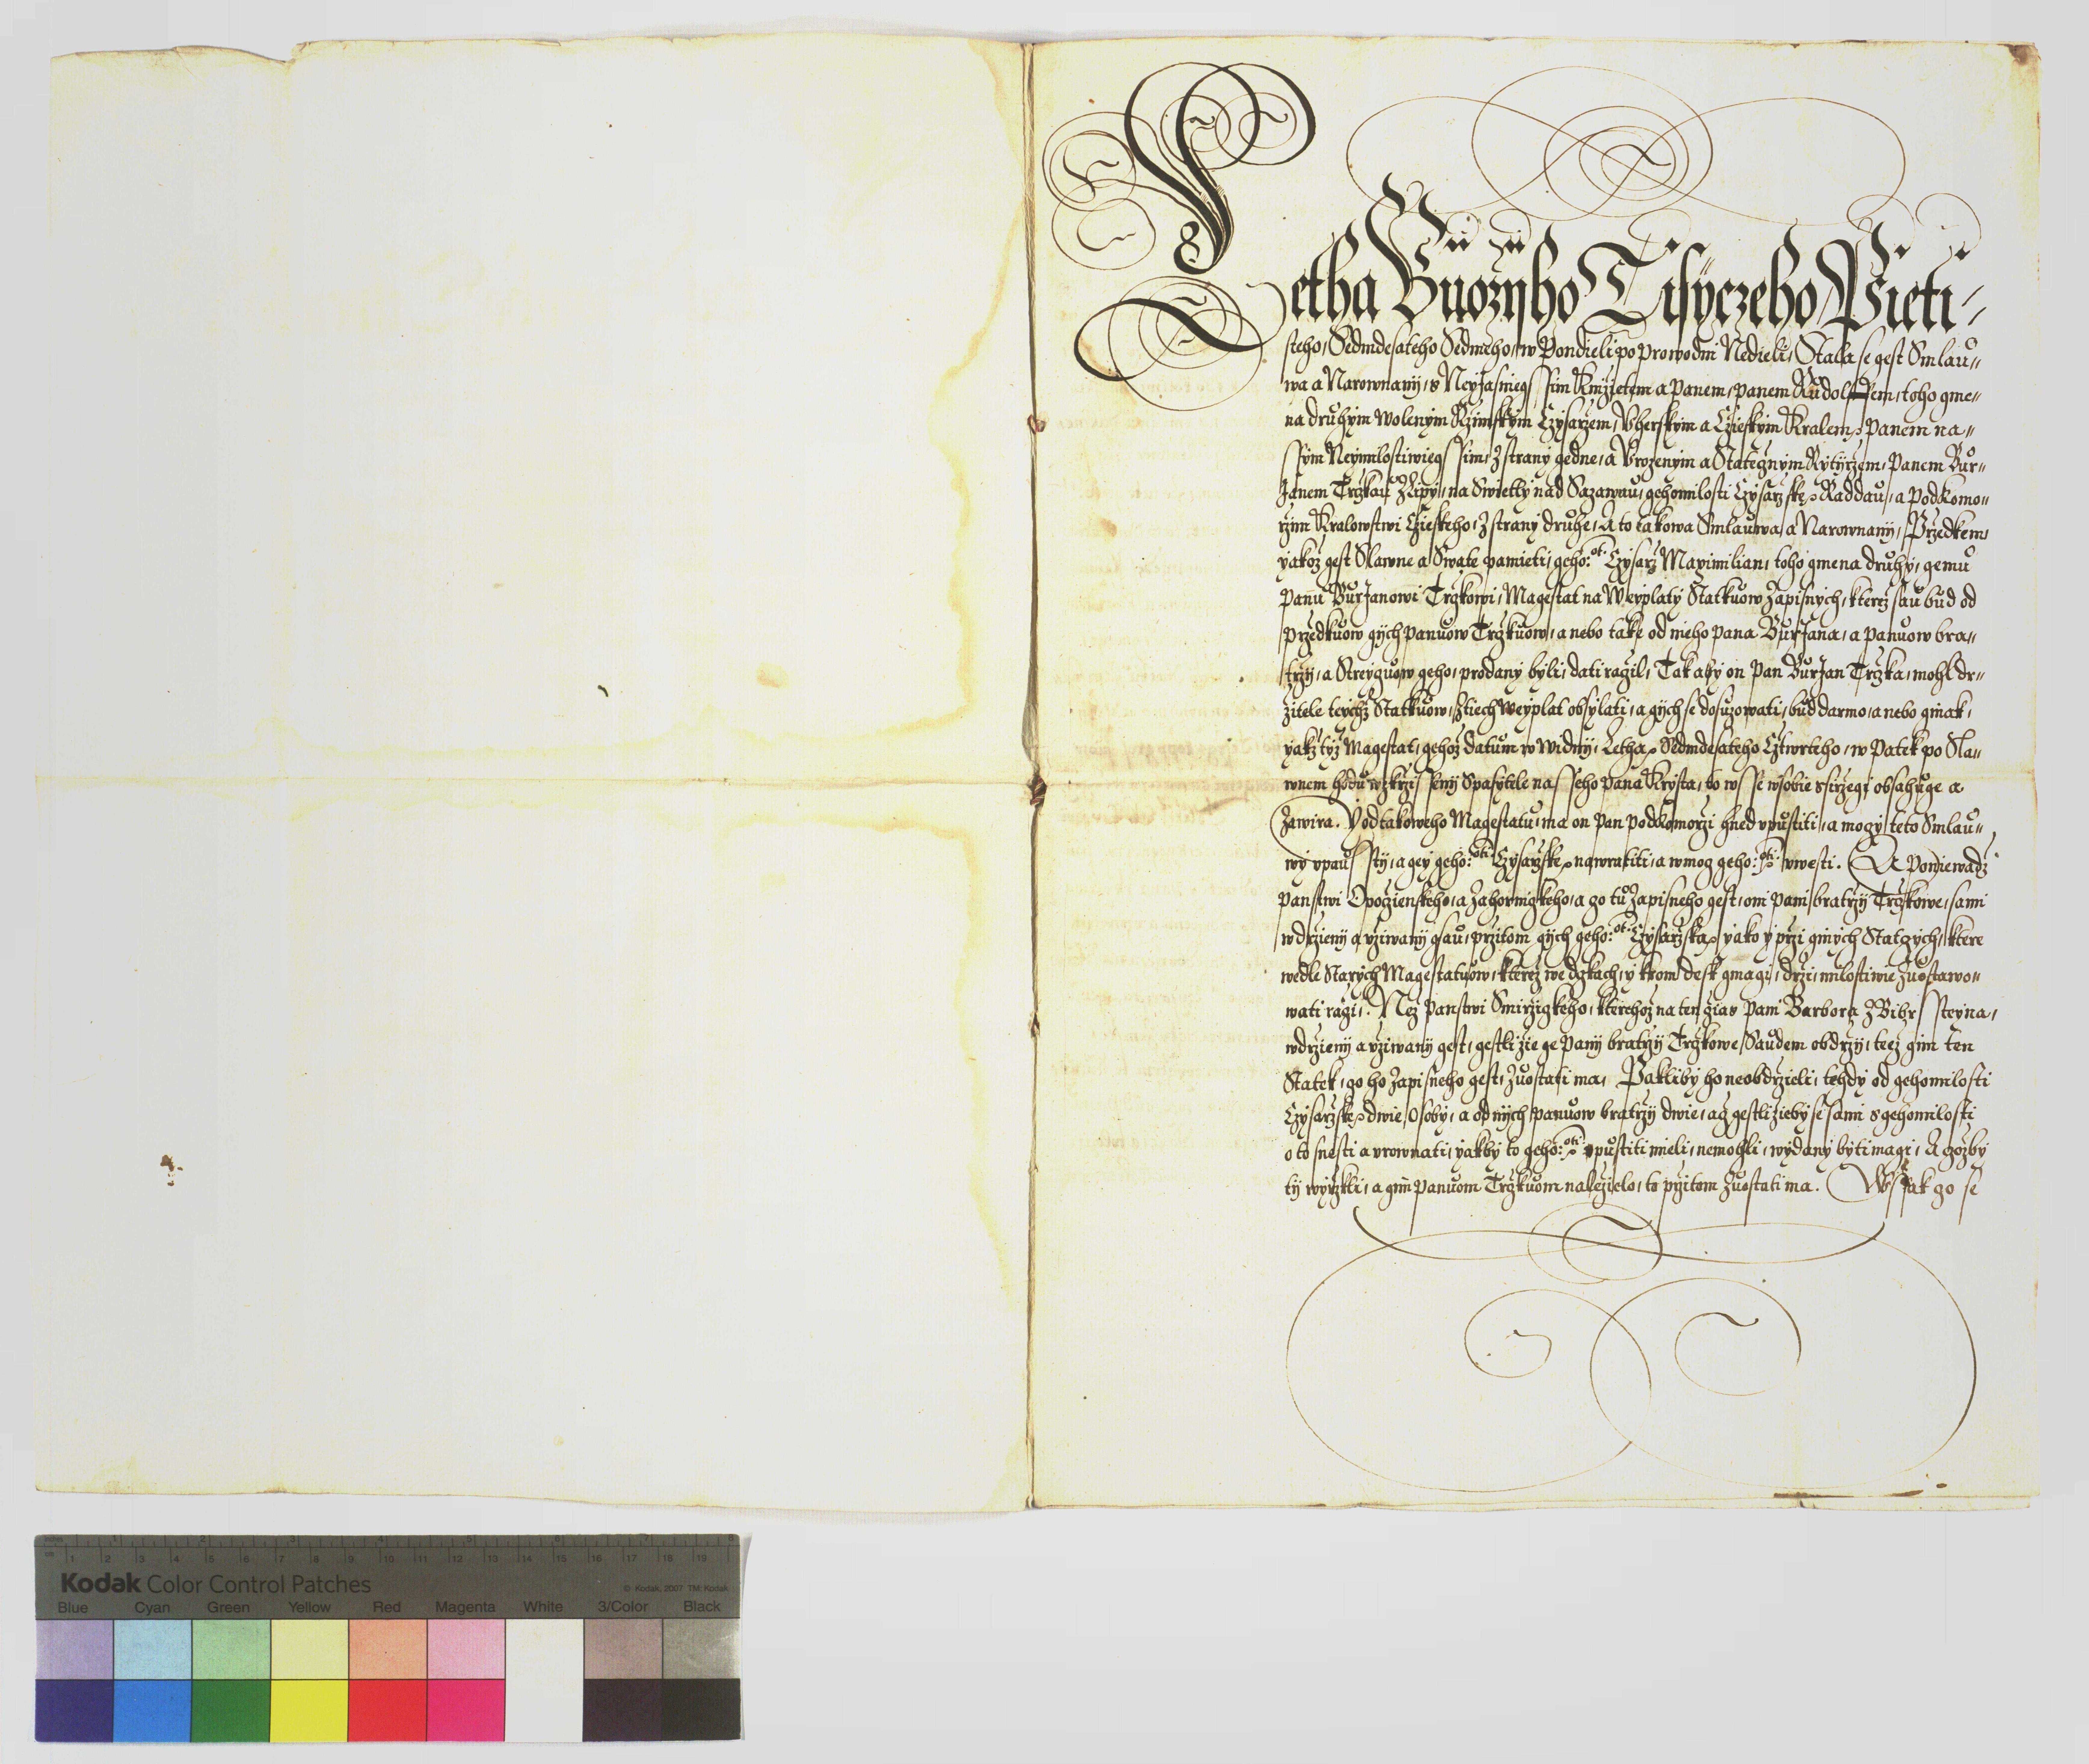 Letha Buozÿho Tisÿczeho Pieti-
steho, Sedmdesateho Sedmeho, w Pondieli po Prowodni Nedieli, Stala se gest Smlau-
wa a Narownanij, s Neyjasniegssim Knijzetem a Panem, Panem Rudolffem, toho gme-
na druhym Wolenym Rzimskym Czysarzem, Vherskym a Czieskym Kralem, Panem na-
ssym Neymilostiwiegssim, Z strany gedne, a Vrozenym a Stategnym Rytyrzem, Panem Bur-
Janem Trczkau z Lipy, na Swietly nad Sazawau, gehomilosti Czysarzske, Raddau, a Podkomo-
rzim Kralowstwi Czieskeho, Z strany druhe, A to takowa Smlauwa, a Narownany, Przedkem,
yakoz gest Slawne a Swate pamieti, geho: oti Czysarz Maximilian, toho gmena druhy, gemu
Panu BurJanowi Trczkowi, Magestat na Weyplaty Statkuow Zapisnych, kterez sau bud od
Przedkuow gijch Panuow Trczkuow, a nebo take od nieho Pana BurJana, a Panuow bra-
trzy, a Streyguow geho, prodany byli, dati raczil, Tak aby on Pan BurJan Trczka, mohl dr-
zitele teychz Statkuow, Ztiech Weyplat obsylati, a gijch se dosuzowati, bud darmo, a nebo ginak,
yakz tyz Magestat, gehoz datum w Widny, Letha, Sedmdesateho Cztwrteho, w Patek po Sla-
wnem hodu wzkrzissenij Spasytele nasseho Pana Krysta, to wsse wsobie ssirzegi obsahuge a
Zawira. Vod takoweho Magestatu, ma on Pan Podkomorzi hned vpustiti, a mogy teto Smlau-
wy vpausstij, a gey geho: oti Czysarzske, nawratiti, a w mog geho: oti vwesti. A Poniewadz
Panstwi Opoczienskeho, a Zahornigkeho, a czo tu Zapisneho gest, oni Pani bratrzy Trczkowe, sami
w drzieny a vziwany gsau, przitom gych geho: ot: Czysarzska, yako y przi ginych Statczych, ktere
wedle Starych Magestatuow, kterez we dczkach, y krom desk gmagi, drzi, milostiwie Zuostawo-
wati raczi. Nez Panstwi Smirzigkeho, kterehoz na ten czias Pani Barbora Z Bibrssteyna,
w drzieny a vziwany gest, gestli zie ge Pany bratrzy Trczkowe, Saudem obdrzy, teez gim ten
Statek, czo ho Zapisneho gest, Zuostati ma, Pakliby ho neobdrzieli, tehdy od gehomilosti
Czysarzske, dwie Osoby, a od nych Panuow bratrzy dwie, acz gestli zieby se sami s gehomilosti
o to snesti a vrownati, yakby to geho: oti: vpustiti mieli, nemohli, wydany byti magi, A czozby
ty wyrzkli, a gim Panuom Trczkuom nalezielo, to przitom Zuostati ma. Wssak czo se
Kodak Color Control Patches
© Kodak, 2007 TM: Kodak
Blue Cyan Green Yellow Red Magenta White 3/Color Black